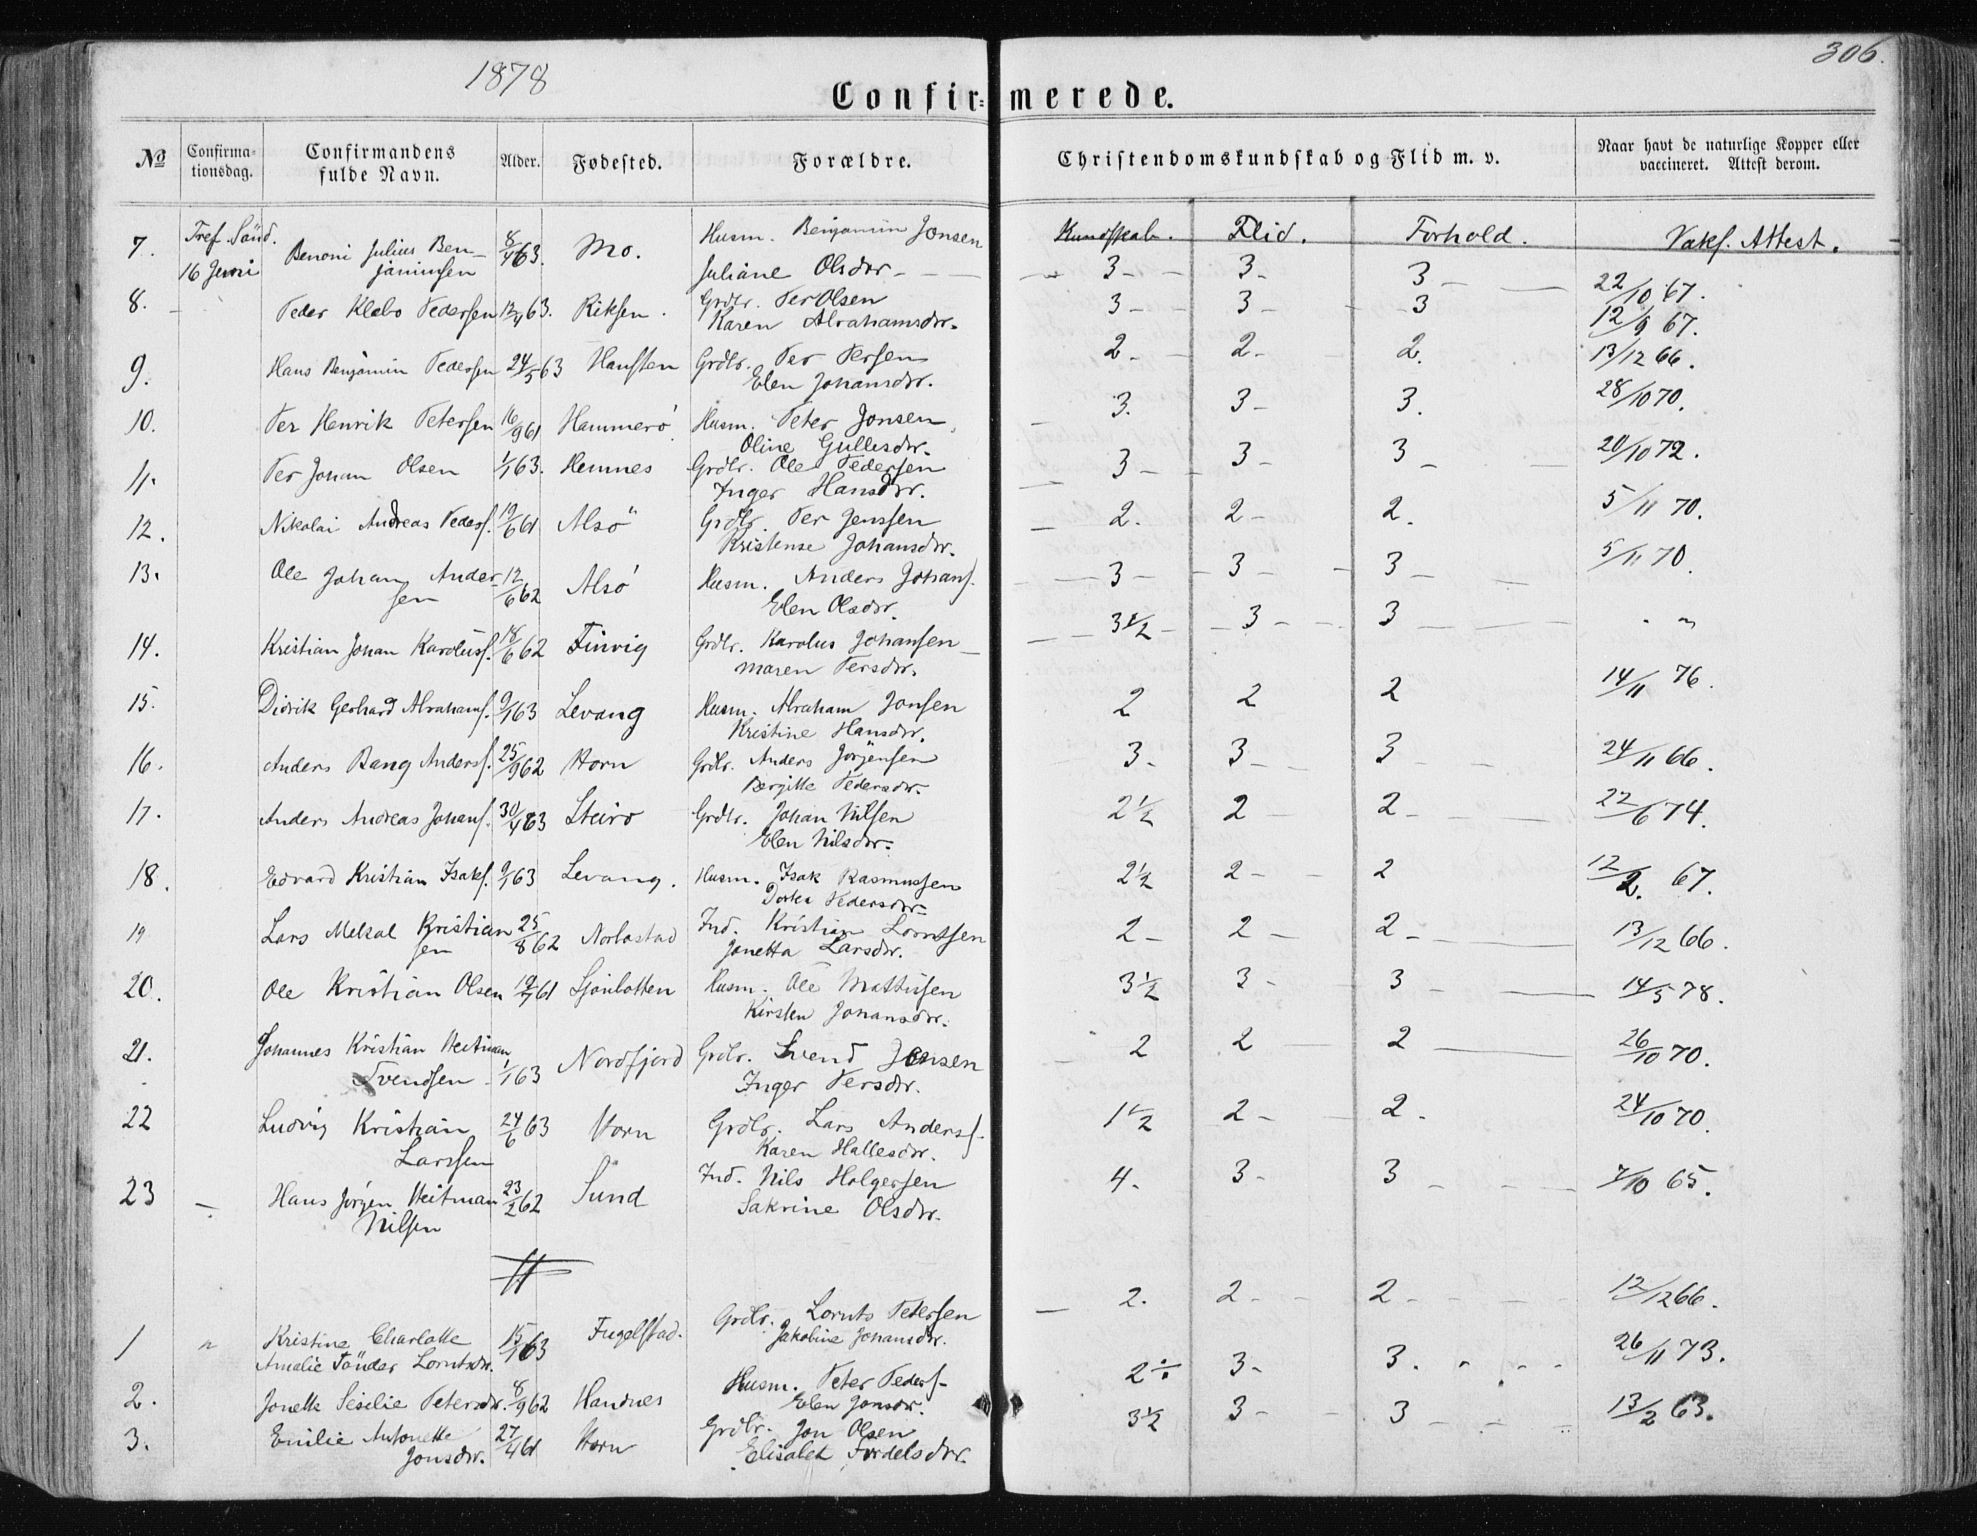 1878
306.
Confir=merede.
No
Confirma=
tionsdag.
Confirmandens
fulde Navn.
Alder.
Fødested.
Forældre.
Christendomskundskab og Flid m. v.
Naar havt de naturlige Kopper eller
vaccineret. Attest derom.
Kundskab. Flid. Forhold. Vaks. Attest.
7. Tref. Sönd. Benoni Julius Ben- 8/4 63. Mo. Husm. Benjamin Jonsen
16 Juni jaminsen Juliane Olsdr. 3 3 3 22/10 67.
8. Peder Klebo Pedersen 12/4 63. Riksen. Grdbr. Per Olsen 3 3 3 12/9 67.
Karen Abrahamsdr.
9. Hans Benjamin Pedersen 24/5 63 Hansten Grdbr. Per Persen 2 2 2. 13/12 66.
Elen Johansdr.
10. Per Henrik Petersen 16/9 61 Hammerö. Husm. Peter Jonsen 3. 3 3. 28/10 70.
Oline Gullesdr.
11. Per Johan Olsen 1/1 63. Hemnes Grdbr. Ole Pedersen 3 3 3 20/10 72.
Inger Hansdr.
12. Nikolai Andreas Peders. 19/6 61 Alsö Grdbr. Per Jenssen 2. 2 2. 5/11 70.
Kristense Johansdr.
13. Ole Johan Ander- 12/6 62 Alsö Husm. Anders Johans. 3 3 3 5/11 70.
sen Elen Olsdr.
14. Kristian Johan Karolius. 18/6 62 Finvig Grdbr. Karolus Johansen 3 1/2 3 3 . "
Maren Persdr.
15. Didrik Gerhard Abrahams. 9/1 63 Levang Husm. Abraham Jonsen 2 2 2 14/11 76.
Kristine Hansdr.
16. Anders Bang Anders. 25/9 62 Horn Grdbr. Anders Jörgensen 3. 3 3 24/11 66.
Bergitte Pedersdr.
17. Anders Andreas Johans. 30/4 63 Steiro Grdbr. Johan Nilsen 2 1/2 2 2 22/6 74.
Elen Nilsdr.
18. Edvard Kristian Isaks. 9/1 63 Levang. Husm. Isak Rasmussen 2 1/2 2 2 12/2. 67.
Dortea Pedersdr.
19 Lars Mekal Kristian 25/8 62 Norbostad Ind. Kristian Lorntsen 2 2 2 13/12 66.
sen Janetta Larsdr.
20. Ole Kristian Olsen 19/7 61 Sjonbotten Husm. Ole Mattissen 3 1/2 3 3 14/5 78.
Kirsten Johansdr.
21. Johannes Kristian Heitman Nordfjord Grdbr. Svend Jensen 2 2 2 26/10 70.
Svendsen 1/1 63 Inger Persdr.
22 Ludvig Kristian 24/6 63 Horn Grdbr. Lars Anders. 1 1/2 2 2. 24/10 70.
Larssen Karen Hallesdr.
23 Hans Jörgen Heitman 23/2 62 Sund Ind. Nils Holgersen 4. 3 3 7/10 65.
Nilsen Sakrine Olsdr.
1 " Kristine Charlotte 15/1 63 Fugelstad. Grdbr. Lornts Petersen 2. 2 2 12/12 66.
Amalie Tönder Lorntsdr. Jakobine Johansdr.
2. Jonette Sesilie Petersdr. 8/9 62 Handnes Husm. Peter Peders. 2 ÷ 3 3. 26/11 73.
Elen Jonsdr.
3. Emilie Antonette 27/4 61 Horn Grdbr. Jon Olsen 3 1/2 3 3 13/2 63.
Jonsdr. Elisabet Fordelsdr.